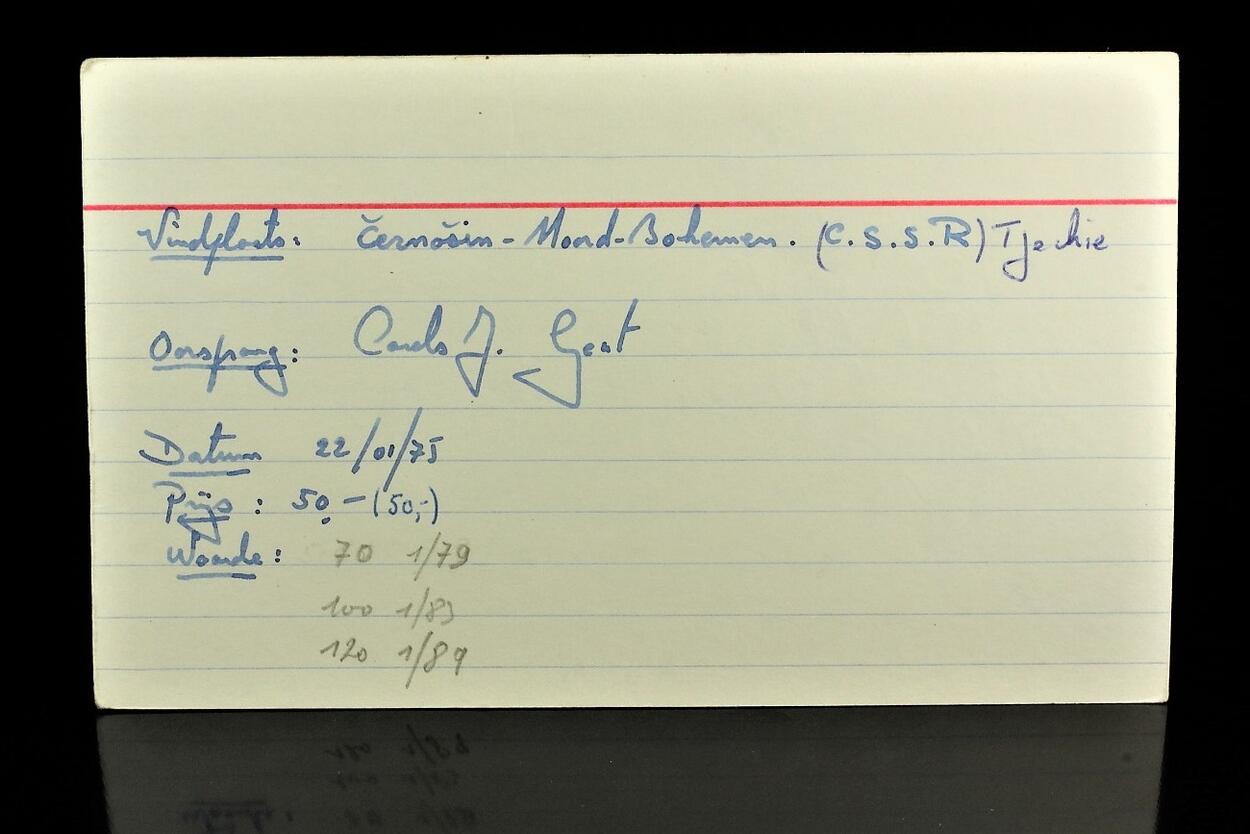 Vindplaats: Černošin - Noord-Bohemen. (C.S.S.R) Tjechie
Oorsprong: Carels J. Gent
Datum 22/01/75
Prijs : 50,- (50,-)
Waarde : 70 1/79
100 1/83
120 1/89